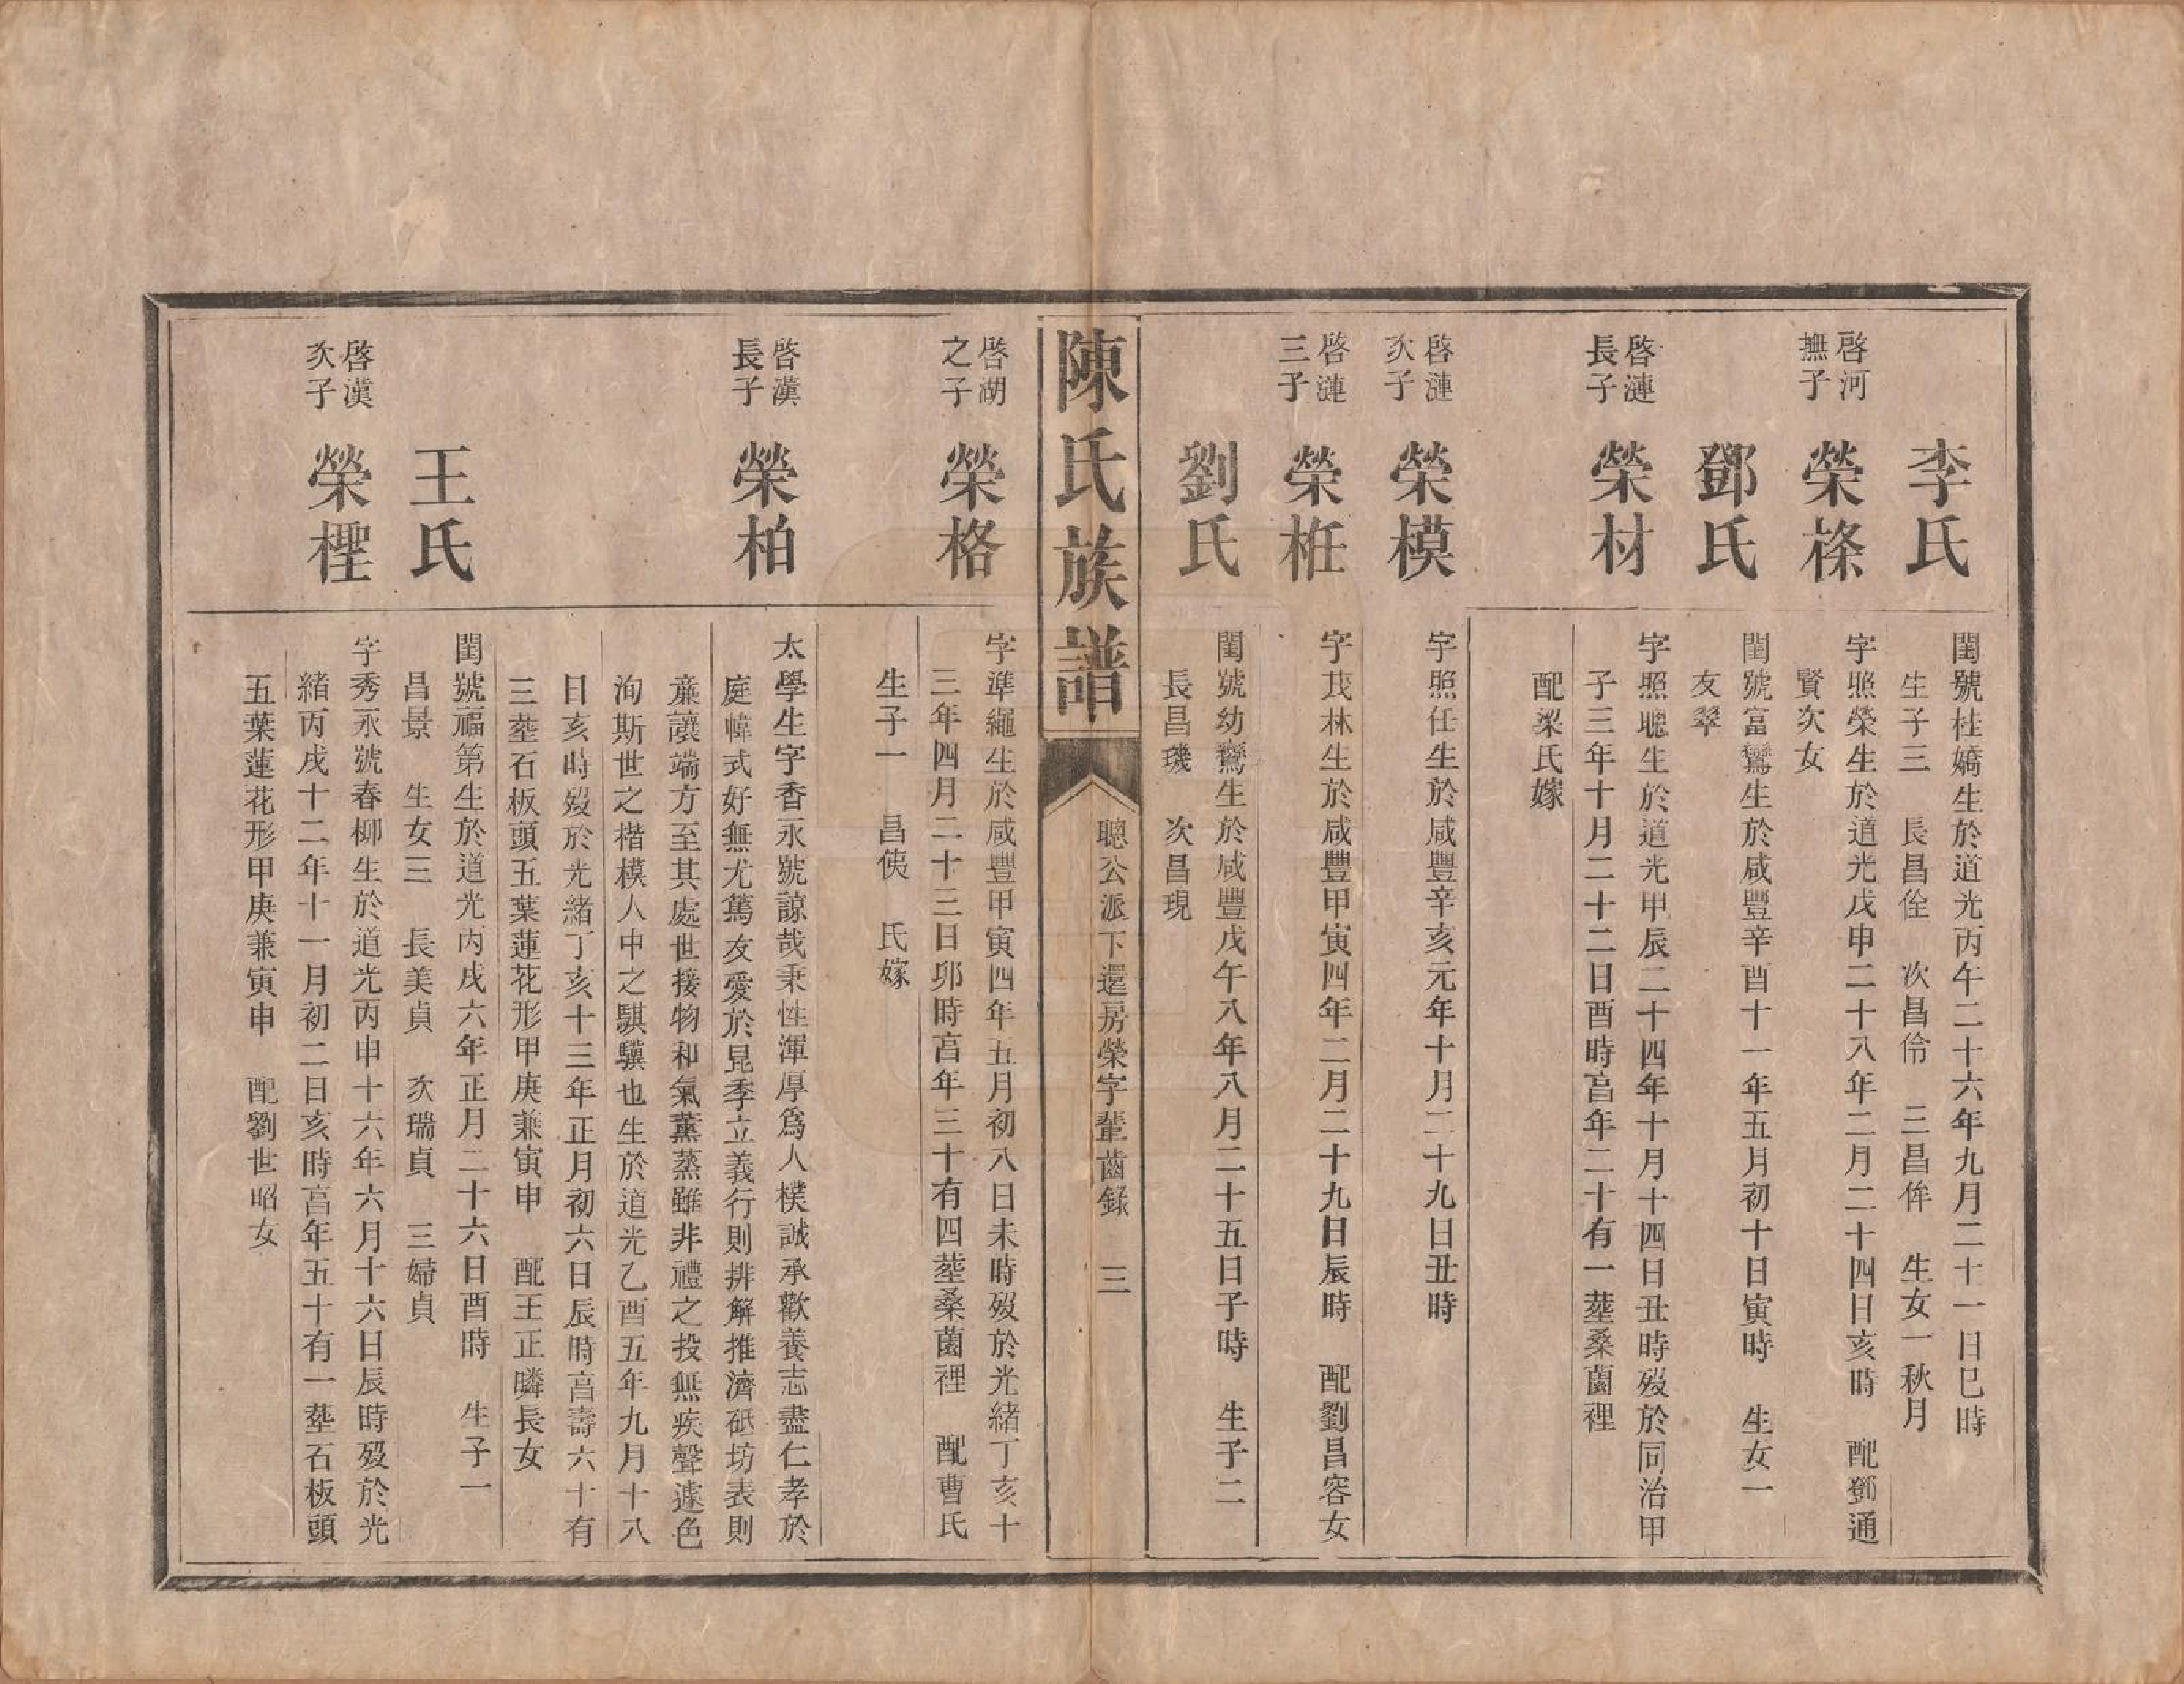 李氏
閨號桂嬌生於道光丙午二十六年九月二十一日巳時
生子三　長昌佺　次昌伶　三昌侔　生女一秋月
啓河
撫子
榮榢
字照榮生於道光戊申二十八年二月二十四日亥時　配鄧通
賢次女
鄧氏
閨號富鸞生於咸豐辛酉十一年五月初十日寅時　生女一
友翠
啓漣
長子
榮材
字照聰生於道光甲辰二十四年十月十四日丑時歿於同治甲
子三年十月二十二日酉時亯年二十有一塟桑薗裡
配梁氏嫁
啓漣
次子
榮模
字照任生於咸豐辛亥元年十月二十九日丑時
啓漣
三子
榮栣
字茂林生於咸豐甲寅四年二月二十九日辰時　配劉昌容女
劉氏
閨號幼鸞生於咸豐戊午八年八月二十五日子時　生子二
長昌璣　次昌現
陳氏族譜
聰公派下還房榮字輩齒錄　三
啓湖
之子
榮格
字準繩生於咸豐甲寅四年五月初八日未時歿於光緒丁亥十
三年四月二十三日卯時亯年三十有四塟桑薗裡　配曹氏
生子一　昌侇　氏嫁
啓漢
長子
榮柏
太學生字香永號諒哉秉性渾厚爲人樸誠承歡養志盡仁孝於
庭幃式好無尤篤友愛於昆季立義行則排解推濟砥坊表則
亷讓端方至其處世接物和氣薰蒸雖非禮之投無疾聲遽色
洵斯世之楷模人中之騏驥也生於道光乙酉五年九月十八
日亥時歿於光緒丁亥十三年正月初六日辰時亯壽六十有
三塟石板頭五葉蓮花形甲庚兼寅申　配王正疄長女
王氏
閨號福第生於道光丙戌六年正月二十六日酉時　生子一
昌景　生女三　長美貞　次瑞貞　三婦貞
啓漢
次子
榮檉
字秀永號春柳生於道光丙申十六年六月十六日辰時歿於光
緒丙戌十二年十一月初二日亥時亯年五十有一塟石板頭
五葉蓮花形甲庚兼寅申　配劉世昭女